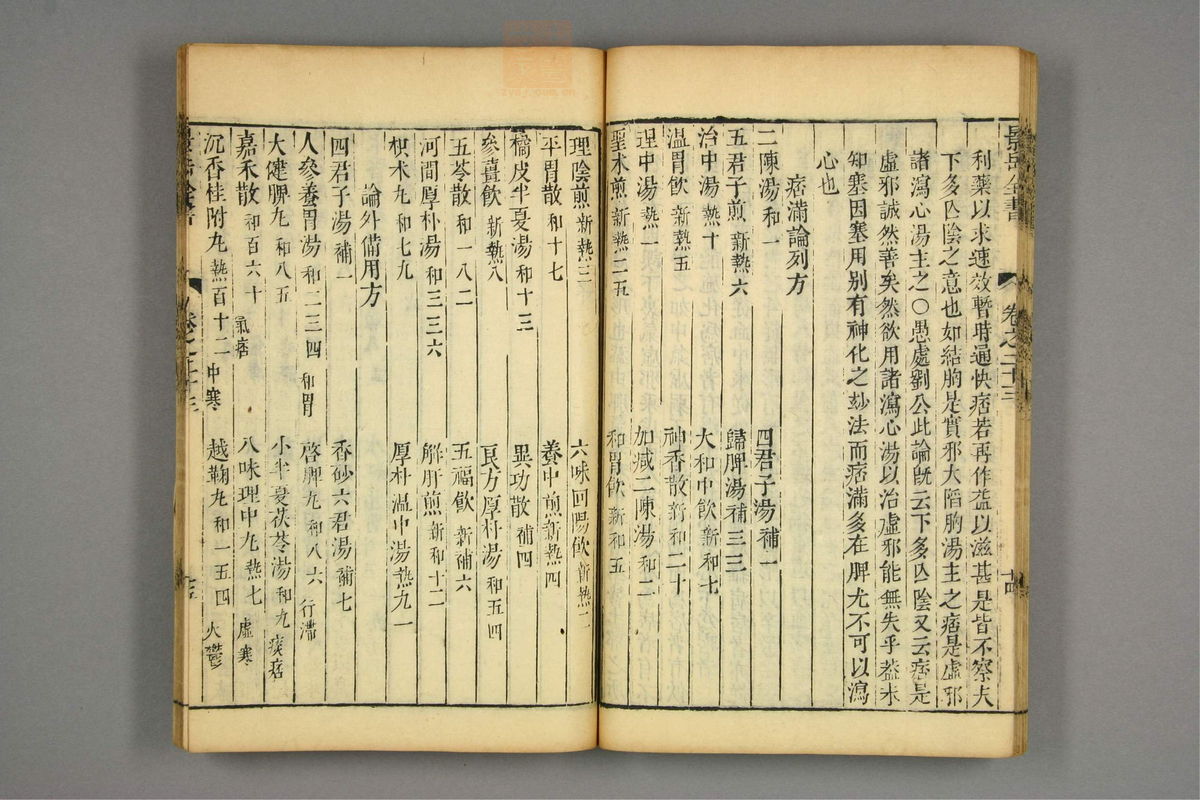 景岳全書 卷之二十三 十四
利藥以求速效暫時通快痞若再作益以滋甚是皆不察夫
下多亡陰之意也如結胸是實邪大陷胸湯主之痞是虛邪
諸瀉心湯主之〇愚處劉公此論既云下多亡陰又云痞是
虛邪誠然善矣然欲用諸瀉心湯以治虛邪能無失乎葢未
知塞因塞用別有神化之妙法而痞滿多在脾尤不可以瀉
心也
痞滿論列方
二陳湯和一 四君子湯補一
五君子煎新熱六 歸脾湯補三三
治中湯熱十 大和中飲新和七
溫胃飲新熱五 神香散新和二十
理中湯熱一 加減二陳湯和二
聖朮煎新熱二五 和胃飲新和五
理陰煎新熱三 六味回陽飲新熱二
平胃散和十七 養中煎新熱四
橘皮半夏湯和十三 異功散補四
參薑飲新熱八 良方厚朴湯和五四
五苓散和一八二 五福飲新補六
河間厚朴湯和三三六 解肝煎新和十二
枳朮丸和七九 厚朴溫中湯熱九一
論外備用方
四君子湯補一 香砂六君湯補七
人參養胃湯和二三四 和胃 啓脾丸和八六 行滯
大健脾丸和八五 小半夏茯苓湯和九 痰痞
嘉禾散和百六十 氣痞 八味理中丸熱七 虛寒
沉香桂附丸熱百十二 中寒 越鞠丸和一五四 火鬱
卷之二十三